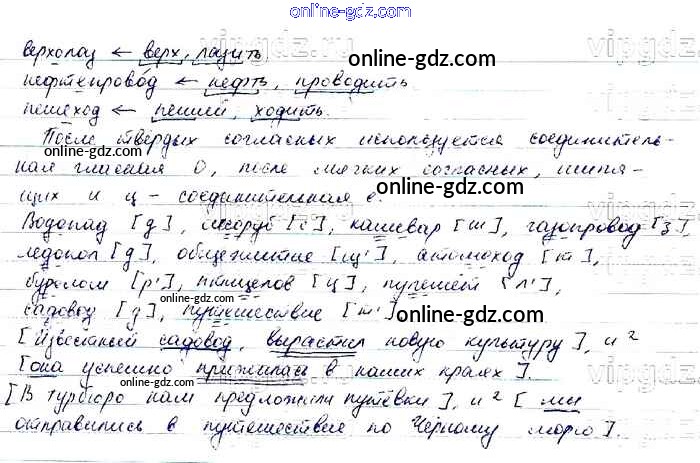 online-gdz.com
верхолаз ← верх, лазить
нефтепровод ← нефть, проводить
пешеход ← пеший, ходить.
После твёрдых согласных используется соединитель-
ная гласная О, после мягких согласных, шипя-
щих и ц - соединительная е.
Водопад [д], лесоруб [с], кашевар [ш], газопровод [з],
ледокол [д], общежитие [щ'], атомоход [м],
буролом [р'], птицелов [ц], пулемёт [л'],
садовод [д], путешествие [т']
[Известный садовод, вырастил новую культуру], и ²
[она успешно прижилась в наших краях].
[В турбюро нам предложили путёвки], и ² [мы
отправились в путешествие по Чёрному морю].
vipgdz.ru
online-gdz.com